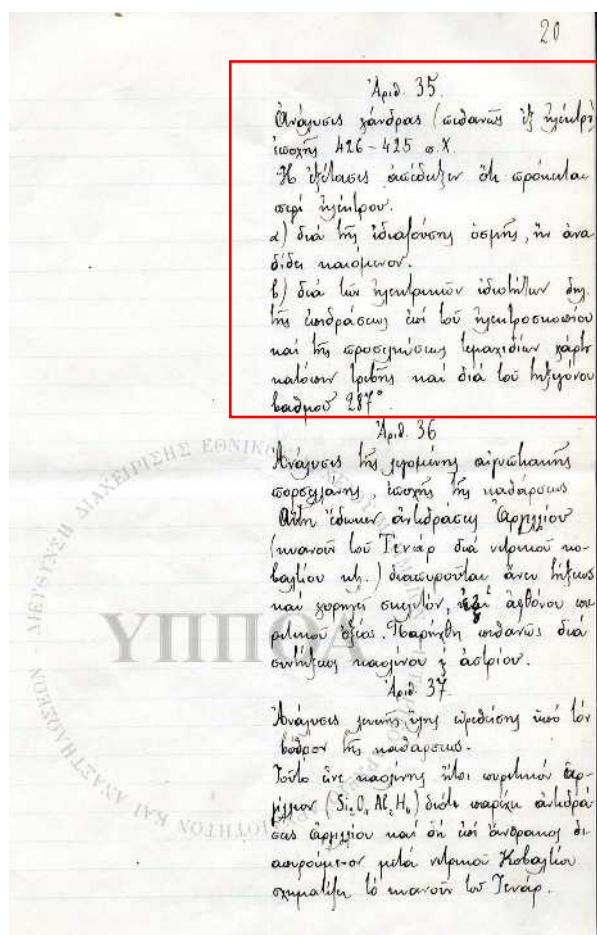 20
Ἀριθ. 35.
Ἀνάλυσις χάνδρας (πιθανῶς ἐξ ἠλέκτρ
ἐποχῆς 426-425 π.Χ.
Ἡ ἐξέτασις ἀπέδειξεν ὅτι πρόκειται
περί ἠλέκτρου.
α) διά τῆς ἰδιαζούσης ὀσμῆς, ἥν ἀνα
δίδει καιόμενον.
β) διά τῶν ἠλεκτρικῶν ἰδιοτήτων δηλ.
τῆς ἐπιδράσεως ἐπί τοῦ ἠλεκτροσκοπίου
καί τῆς προσελκύσεως τεμαχιδίων χάρτ
κατόπιν τριβῆς καί διά τοῦ τηξιγόνου
βαθμοῦ 287°
Ἀριθ. 36
Ἀνάλυσις τῆς λεγομένης αἰγυπτιακῆς
πορσελλάνης, ἐποχῆς τῆς καθάρσεως
Αὕτη ἔδωκεν ἀντιδράσεις Ἀργιλλίου
(κυανοῦν τοῦ Τενάρ διά νιτρικοῦ κο-
βαλτίου κλ.) διαπυροῦται ἄνευ τήξεως
καί χορηγεῖ σκελετόν, ἀφθόνου πυ-
ριτικοῦ ὀξέος. Παρήχθη πιθανῶς διά
συντήξεως καολίνου ἤ ἀστρίου.
Ἀριθ. 37.
Ἀνάλυσις λευκῆς ὕλης εὑρεθείσης ὑπό τόν
βόθρον τῆς καθάρσεως.
Τοῦτο εἶνε καολίνης ἤτοι πυριτικόν ἀρ-
γίλλιον (Si₂O₉Al₂H₄) διότι παρέχει ἀντιδρά
σεις ἀργιλλίου καί δή ἐπί ἄνθρακος δι
απυρούμενον μετά νιτρικοῦ Κοβαλτίου
σχηματίζει τό κυανοῦν τοῦ Τενάρ.
ΥΠΠΟΑ